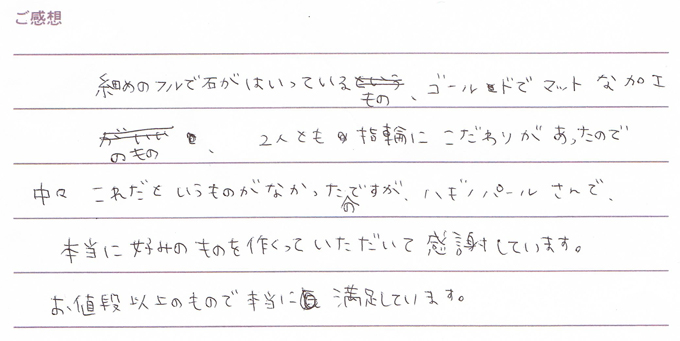 ご感想
細めのフルで石がはいっているもの、ゴールドでマットな加工
のもの、2人とも指輪にこだわりがあったので
中々これだというものがなかったのですが、ハギノパールさんで、
本当に好みのものを作くっていただいて感謝しています。
お値段以上のもので本当に満足しています。